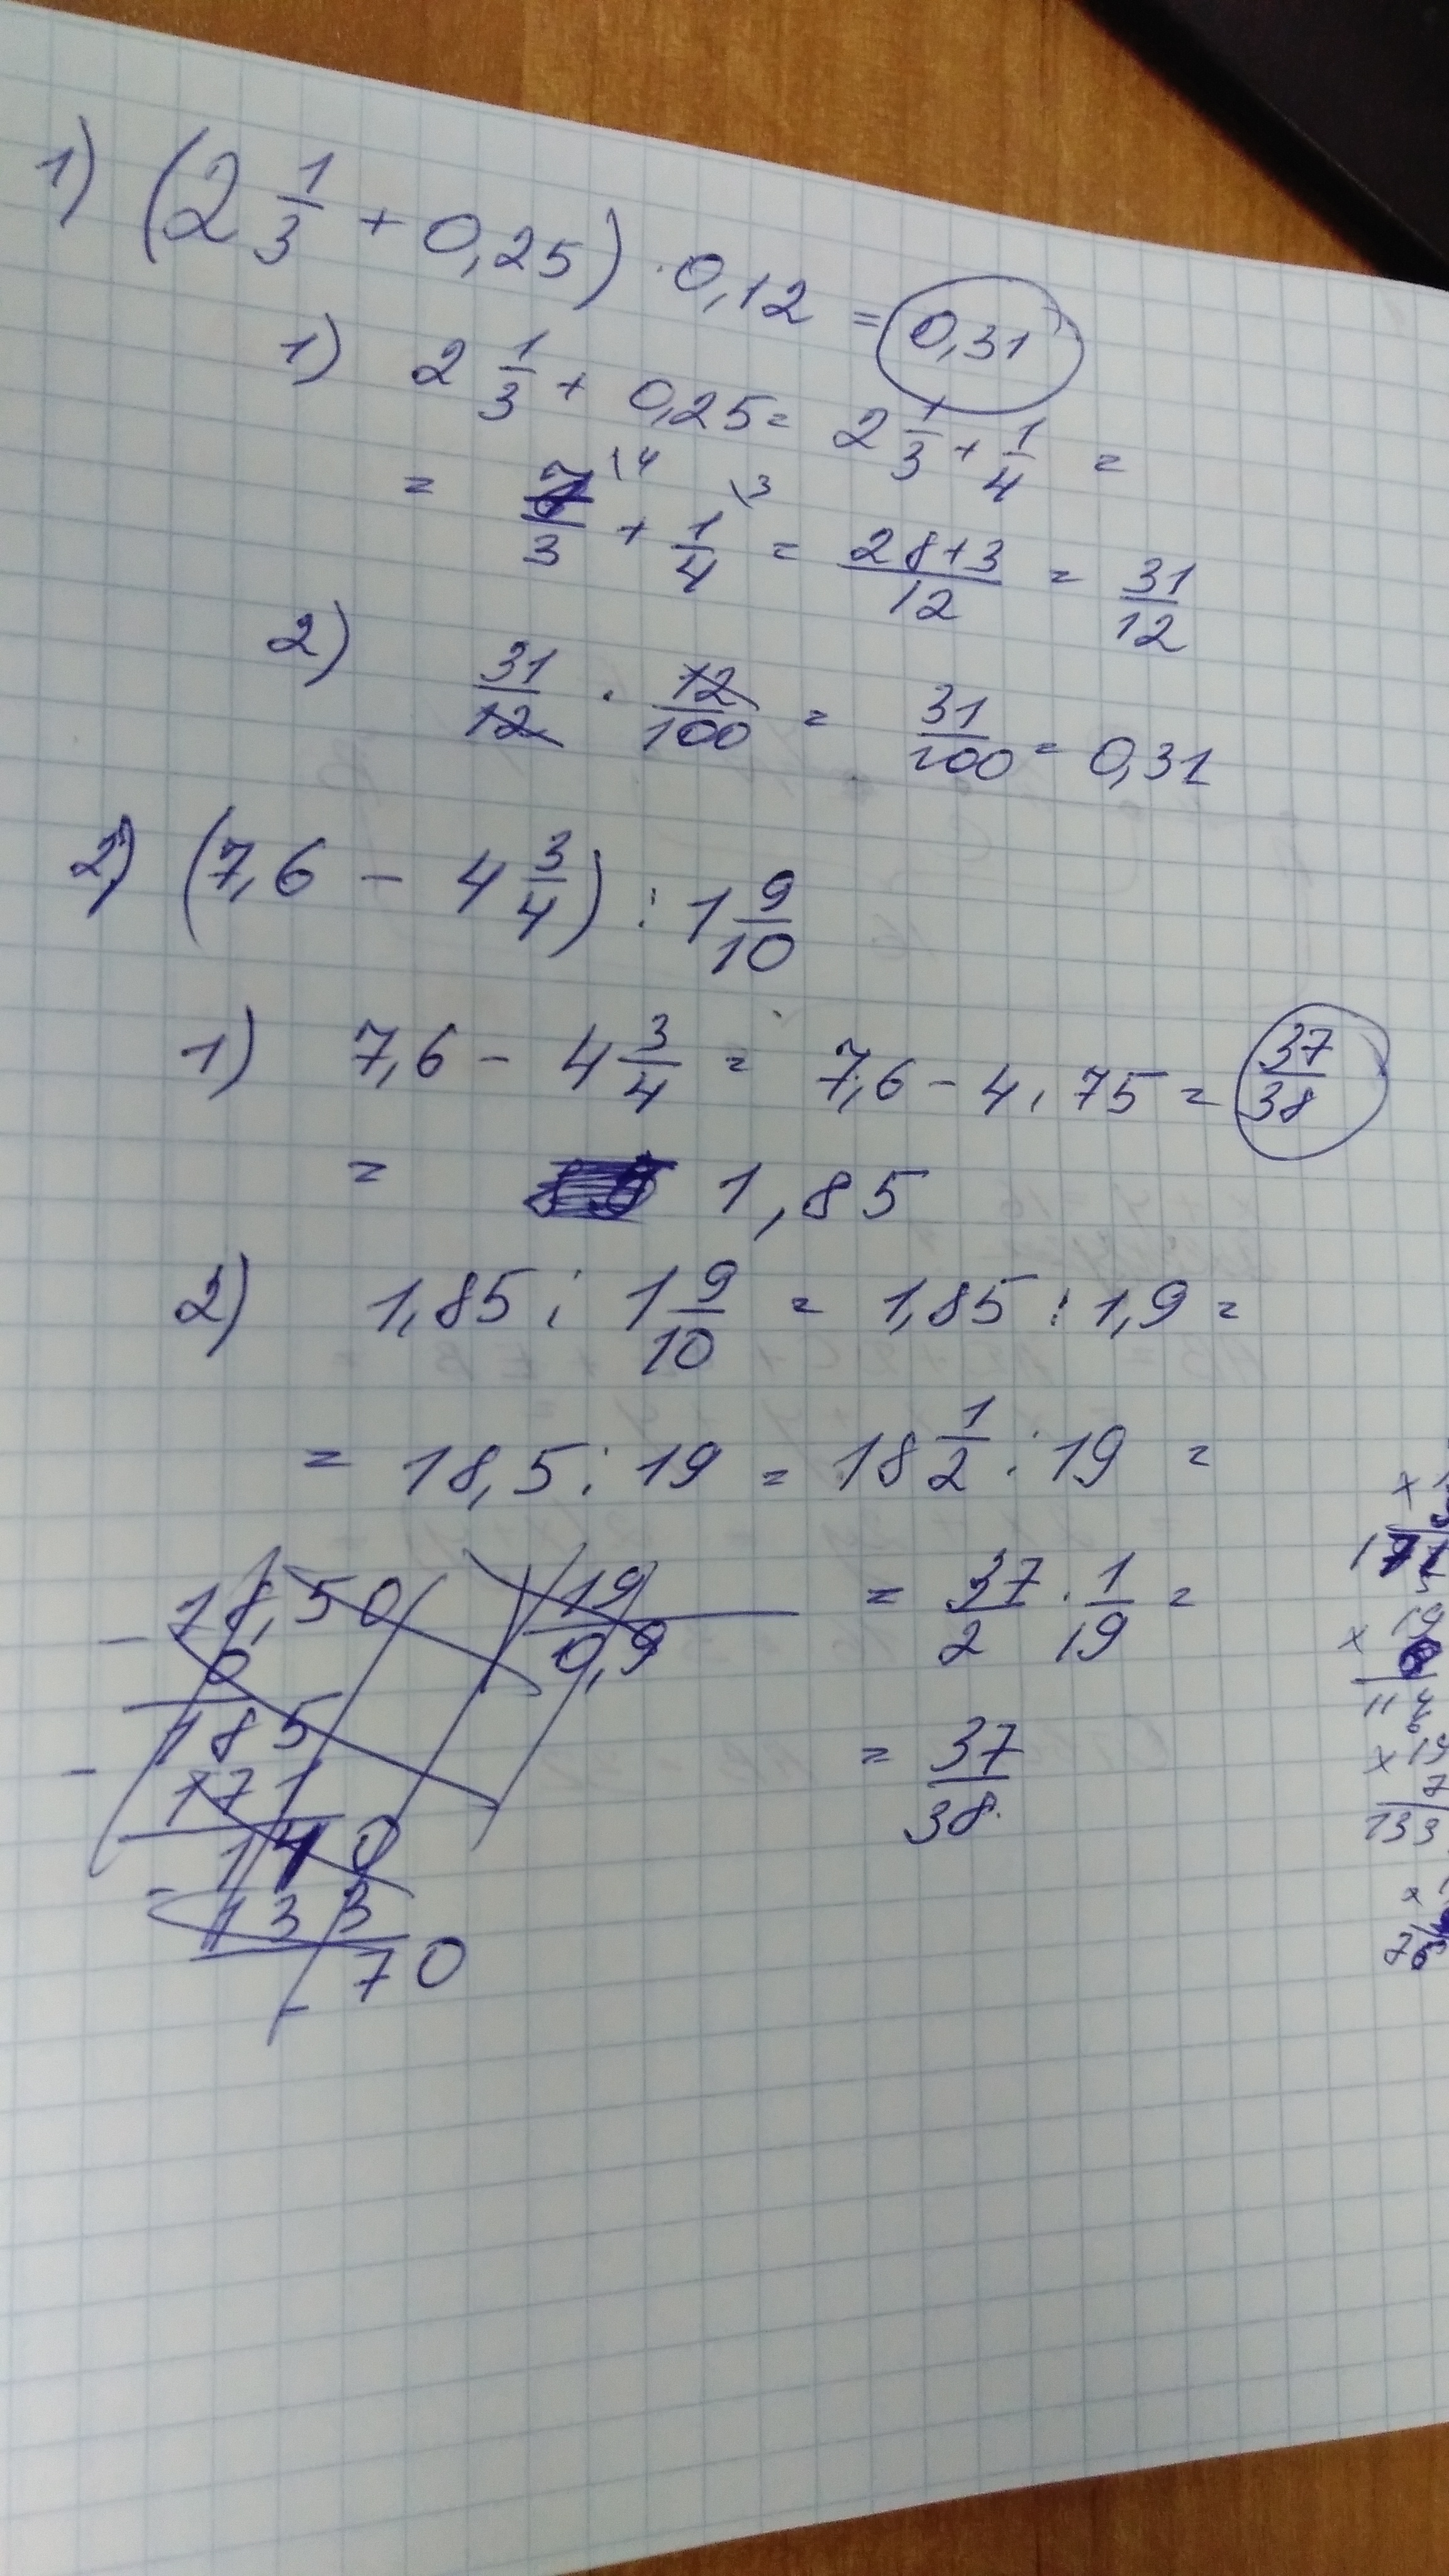 1) (2 1/3 + 0,25) · 0,12 = 0,31
1) 2 1/3 + 0,25 = 2 1/3 + 1/4 =
= 7/3 \4 + 1/4 \3 = 28+3/12 = 31/12
2) 31/12 · 12/100 = 31/100 = 0,31
2) (7,6 - 4 3/4) : 1 9/10
1) 7,6 - 4 3/4 = 7,6 - 4,75 = 37/38
= 1,85
2) 1,85 : 1 9/10 = 1,85 : 1,9 =
= 18,5 : 19 = 18 1/2 : 19 =
= 37/2 · 1/19 =
= 37/38
- 18,50 19
0 0,9
- 185
171
- 140
133
- 70
171
× 19
114
× 19
7
133